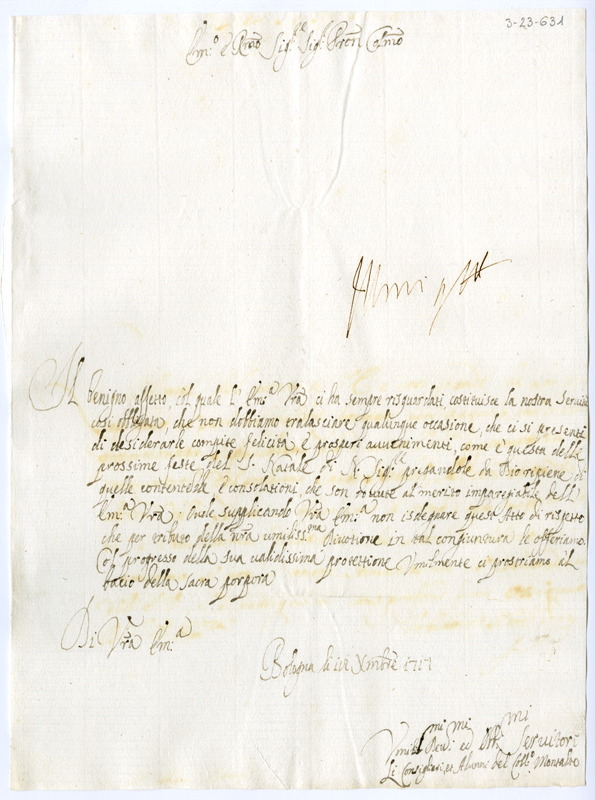 3-23-631
Em.º e Rmo Sig.re Sig.r Pron Colmo
Il benigno affetto, col quale l' Em.a Vra ci ha sempre risguardati, costituisce la nostra Servitù
così obligata, che non dobbiamo tralasciare qualunque occasione, che ci si presenti
di desiderarle compite felicità, e prosperi auuenimenti, come è questa delle
prossime feste del S. Natale di N. Sig.re pregandole da Dio ripiene di
quelle contentezze, e consolationi, che son dovute al merito impareggiabile dell'
Em.a Vra. Onde supplicando Vra Em.a non isdegnare quest' Atto di rispetto
che per tributo della nra umiliss.ma Divotione in tal congiuntura le offeriamo.
Col progresso della sua validissima protettione Vmilmente ci prostriamo al
bacio della Sacra porpora
Di Vra Em.a
Bologna di Xmbre 1717
Vmilmi Devmi ed Obbmi Servitori
Li Consiglieri, et Alunni del Coll.o Montalto